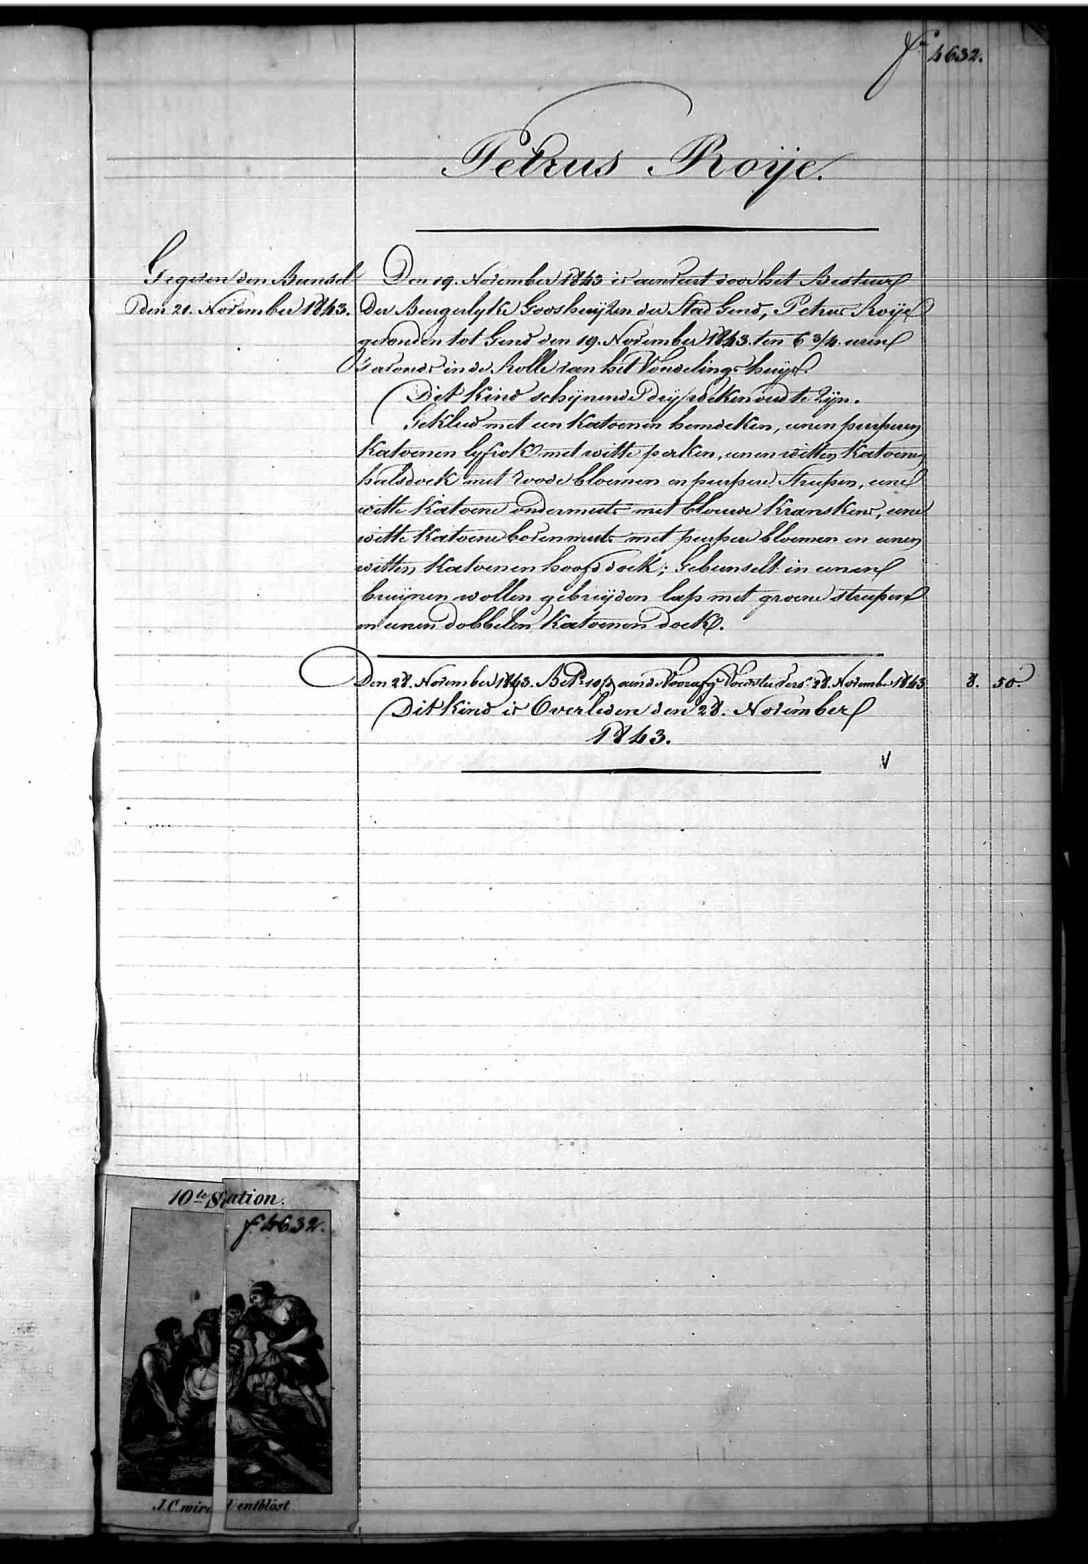 f.° 4632.
Petrus Roije.
Gegeven den Bunsel
Den 21. November 1843.
Den 19. November 1843 is aenveert door het Bestuur
Der Burgerlyke Godshuijzen der Stad Gend, Petrus Roije
gevonden tot Gend den 19. November 1843. ten 6 3/4 uren
s'avonds in de Rolle van het Vondelingshuijs.
Dit kind schijnende drij weken oud te zijn.
Gekleed met een katoenen hemdeken, eenen purperen
katoenen lyfrok met witte perken, eenen witten katoenen
halsdoek met roode bloemen en purpere strepen, eene
witte katoene ondermuts met blouwe kranskens, eene
witte katoene bovenmuts met purper bloemen en eenen
witten katoenen hoofddoek; Gebunselt in eenen
bruijnen wollen gebreijden lap met groene strepen
en eenen dobbelen katoenen doek.
Den 28. November 1843. Bet. aen de Voedster 28. November 1843 8. 50.
Dit kind is Overleden den 28. November
1843.
V
10te Station.
f. 4632.
J.C. wird entblöst